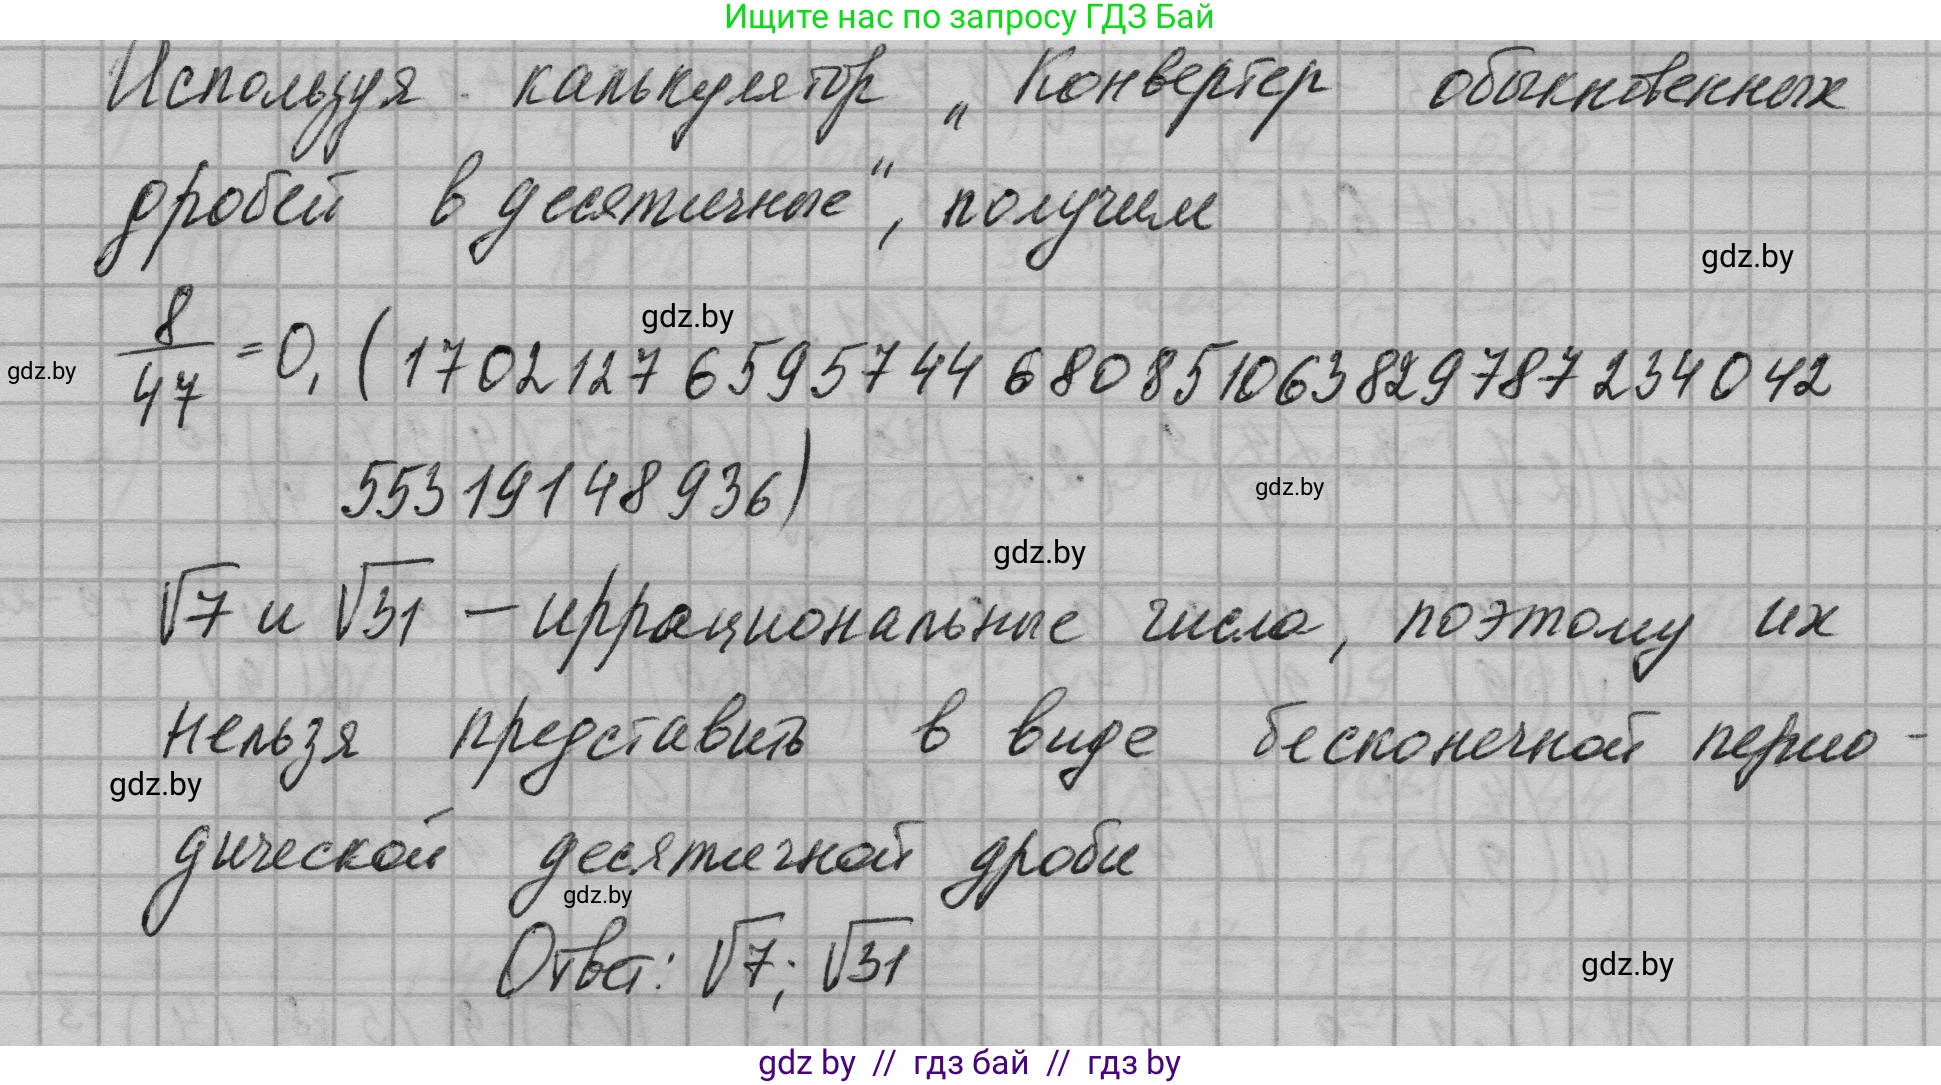 Ищите нас по запросу ГДЗ Бай
Используя калькулятор „Конвертер обыкновенных
дробей в десятичные“, получим
gdz.by
gdz.by
8/47 = 0,(1702127659574468085106382978723404 2
gdz.by
55319148936)
gdz.by
gdz.by
√7 и √31 – иррациональные числа, поэтому их
нельзя представить в виде бесконечной перио-
gdz.by
дической десятичной дроби
gdz.by
Ответ: √7; √31
gdz.by
gdz by // гдз бай // гдз by